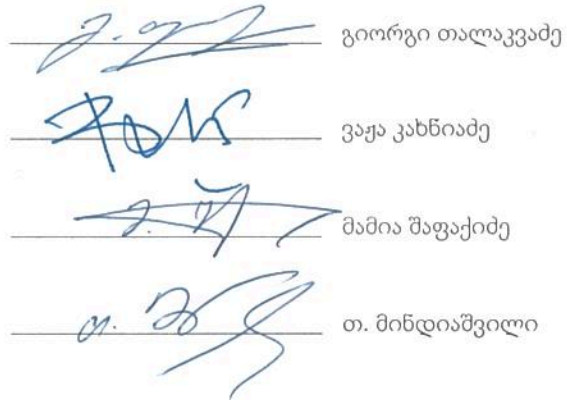 გიორგი თალაკვაძე
ვაჟა კახნიაძე
მამია შაფაქიძე
თ. მინდიაშვილი